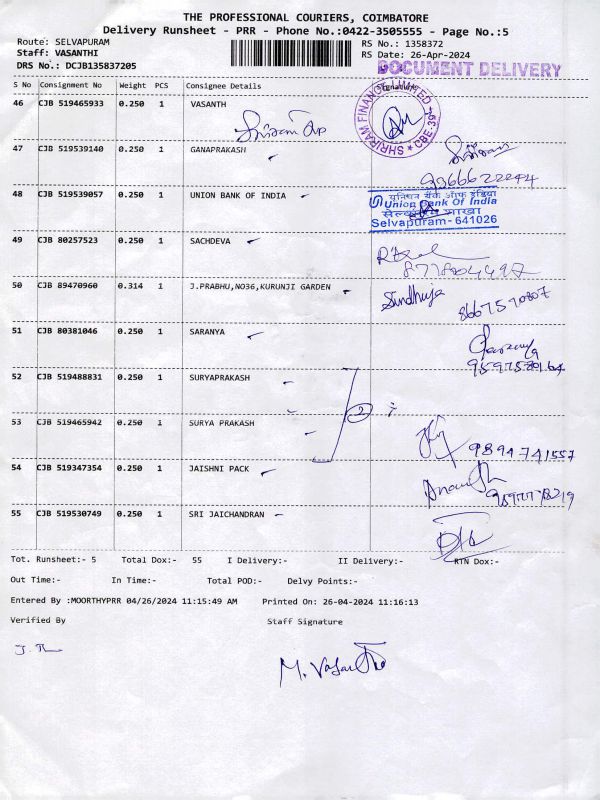 THE PROFESSIONAL COURIERS, COIMBATORE
Delivery Runsheet - PRR - Phone No.:0422-3505555 - Page No.:5
Route: SELVAPURAM
RS No.: 1358372
Staff: VASANTHI
RS Date: 26-Apr-2024
DRS No.: DCJB135837205
DOCUMENT DELIVERY
S No Consignment No Weight PCS Consignee Details Signature
46 CJB 519465933 0.250 1 VASANTH
SHRIRAM FINANCE LIMITED
CBE-39
47 CJB 519539140 0.250 1 GANAPRAKASH
9966622244
48 CJB 519539057 0.250 1 UNION BANK OF INDIA
यूनियन बैंक ऑफ इंडिया
Union Bank Of India
शाखा
Selvapuram - 641026
49 CJB 80257523 0.250 1 SACHDEVA
50 CJB 89470960 0.314 1 J.PRABHU,NO36,KURUNJI GARDEN
Sindhuja
8667590807
51 CJB 80381046 0.250 1 SARANYA
52 CJB 519488831 0.250 1 SURYAPRAKASH
2
53 CJB 519465942 0.250 1 SURYA PRAKASH
9894741557
54 CJB 519347354 0.250 1 JAISHNI PACK
55 CJB 519530749 0.250 1 SRI JAICHANDRAN
Tot. Runsheet:- 5 Total Dox:- 55 I Delivery:- II Delivery:- RTN Dox:-
Out Time:- In Time:- Total POD:- Delvy Points:-
Entered By :MOORTHYPRR 04/26/2024 11:15:49 AM Printed On: 26-04-2024 11:16:13
Verified By Staff Signature
M. Vasantha